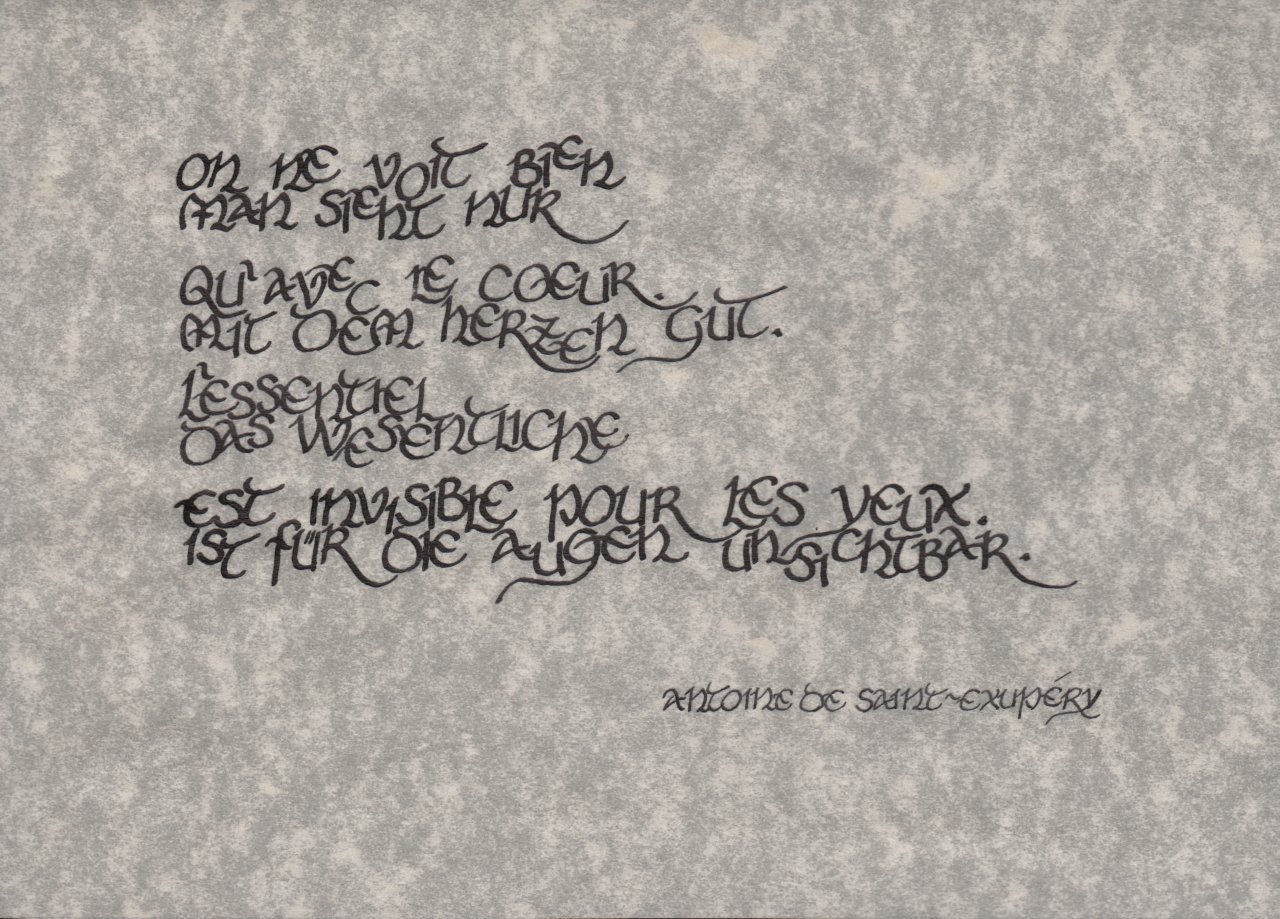 On ne voit bien
man sieht nur
qu'avec le coeur.
mit dem herzen gut.
L'essentiel
das wesentliche
est invisible pour les yeux.
ist für die augen unsichtbar.
antoine de saint-exupéry